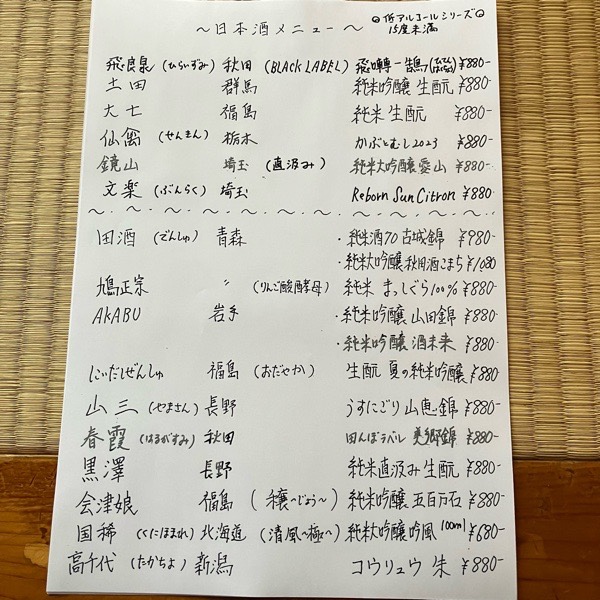 ～日本酒メニュー～
低アルコールシリーズ
15度未満
飛良泉 (ひらいずみ) 秋田 (BLACK LABEL) 飛囀 ¥880-
土田 群馬 純米吟醸 生酛 ¥880-
大七 福島 純米 生酛 ¥880-
仙禽 (せんきん) 栃木 かぶとむし2023 ¥880-
鏡山 埼玉 (直汲み) 純米大吟醸 愛山 ¥880-
文楽 (ぶんらく) 埼玉 Reborn Sun Citron ¥880-
田酒 (でんしゅ) 青森 ・純米酒70 古城錦 ¥980-
・純米大吟醸 秋田酒こまち ¥1080
鳩正宗 〃 (りんご酸酵母) 純米 まっしぐら100% ¥880-
AKABU 岩手 ・純米吟醸 山田錦 ¥880-
・純米吟醸 酒未来 ¥880-
にいだしぜんしゅ 福島 (おだやか) 生酛 夏の純米吟醸 ¥880-
山三 (やまさん) 長野 うすにごり 山恵錦 ¥880-
春霞 (はるがすみ) 秋田 田んぼラベル 美郷錦 ¥880-
黒澤 長野 純米直汲み 生酛 ¥880-
会津娘 福島 (穣～じょう～) 純米吟醸 五百万石 ¥880-
国稀 (くにまれ) 北海道 (清風～極～) 純米大吟醸吟風 100ml ¥680-
高千代 (たかちよ) 新潟 コウリュウ 朱 ¥880-